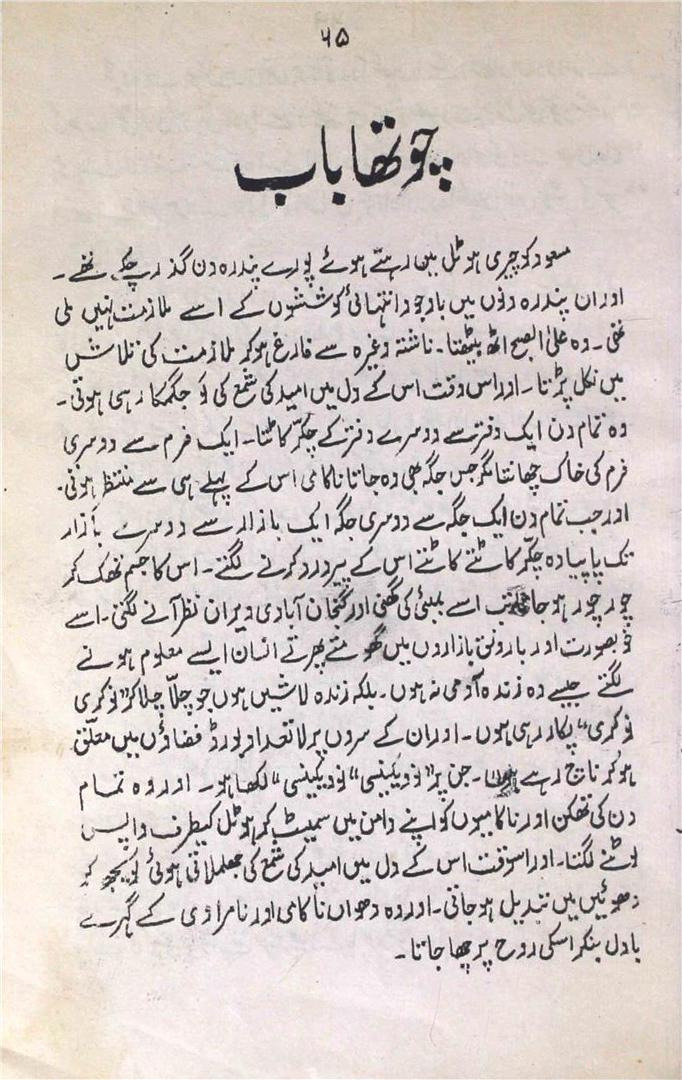 ۶۵
چوتھا باب
مسعود کو چیری ہوٹل میں رہتے ہوئے پورے پندرہ دن گذر چکے تھے۔
اور ان پندرہ دنوں میں باوجود انتہائی کوششوں کے اسے ملازمت نہیں ملی
تھی۔ وہ علی الصبح اٹھ بیٹھتا۔ ناشتہ وغیرہ سے فارغ ہوکر ملازمت کی تلاش
میں نکل پڑتا۔ اور اس وقت اس کے دل میں امید کی شمع کی لَو جگمگا رہی ہوتی۔
وہ تمام دن ایک دفتر سے دوسرے دفتر کے چکّر کاٹتا۔ ایک فرم سے دوسری
فرم کی خاک چھانتا مگر جس جگہ بھی وہ جاتا ناکامی اس کے پہلے ہی سے منتظر ہوتی۔
اور جب تمام دن ایک جگہ سے دوسری جگہ ایک بازار سے دوسرے بازار
تک پاپیادہ چکّر کاٹتے کاٹتے اس کے پیر درد کرنے لگتے۔ اس کا جسم تھک کر
چور چور ہو جاتا تب اسے بمبئی کی گھنی اور گنجان آبادی ویران نظر آنے لگتی۔ اسے
خوبصورت اور بارونق بازاروں میں گھومتے پھرتے انسان ایسے معلوم ہونے
لگتے جیسے وہ زندہ آدمی نہ ہوں۔ بلکہ زندہ لاشیں ہوں جو چلّا چلّا کر "نوکری
نوکری" پکار رہی ہوں۔ اور ان کے سروں پر لاتعداد بورڈ فضاؤں میں معلّق
ہو کر ناچ رہے ہوں۔ جن پر "نو ویکینسی" "نو ویکینسی" لکھا ہو۔ اور وہ تمام
دن کی تھکن اور ناکامیوں کو اپنے دامن میں سمیٹ کر ہوٹل کیطرف واپس
لوٹنے لگتا۔ اور اسوقت اس کے دل میں امید کی شمع کی جھلملاتی ہوئی لَو بجھ کر
دھوئیں میں تبدیل ہو جاتی۔ اور وہ دھواں ناکامی اور نامرادی کے گہرے
بادل بنکر اسکی روح پر چھا جاتا۔